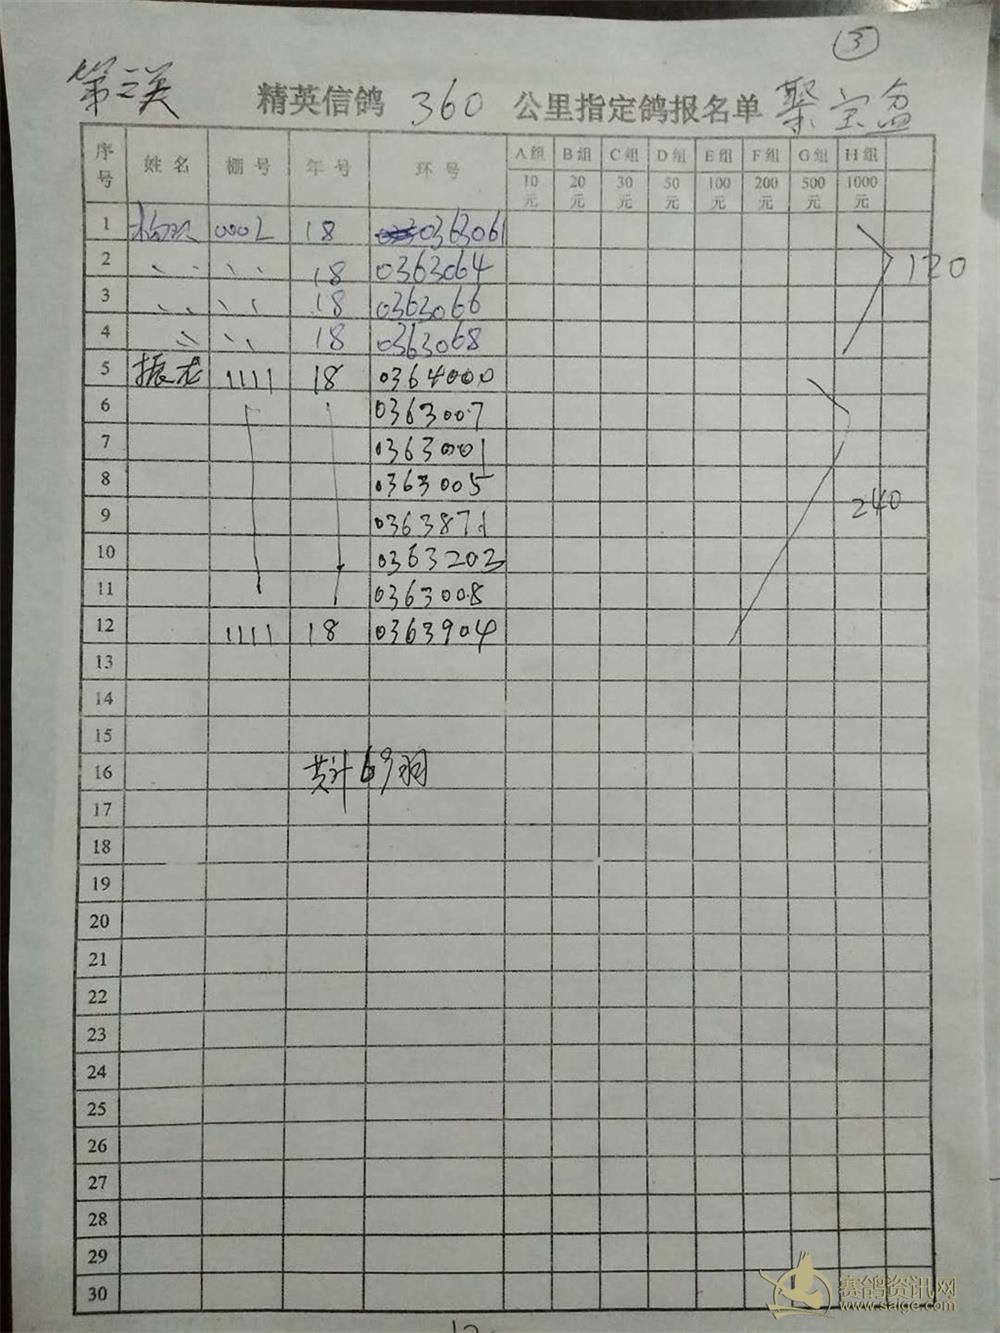 ③
第二关 精英信鸽 360 公里指定鸽报名单 聚宝盆
序号 姓名 棚号 年号 环号 A组 B组 C组 D组 E组 F组 G组 H组
10元 20元 30元 50元 100元 200元 500元 1000元
1 0002 18 0363061
2 18 0363064 120
3 18 0363066
4 18 0363068
5 振龙 1111 18 0364000
6 0363007
7 0363001
8 0363005
9 0363871 240
10 0363202
11 0363008
12 1111 18 0363904
13
14
15
16 共计69羽
17
18
19
20
21
22
23
24
25
26
27
28
29
30
赛鸽资讯网
www.saige.com
12